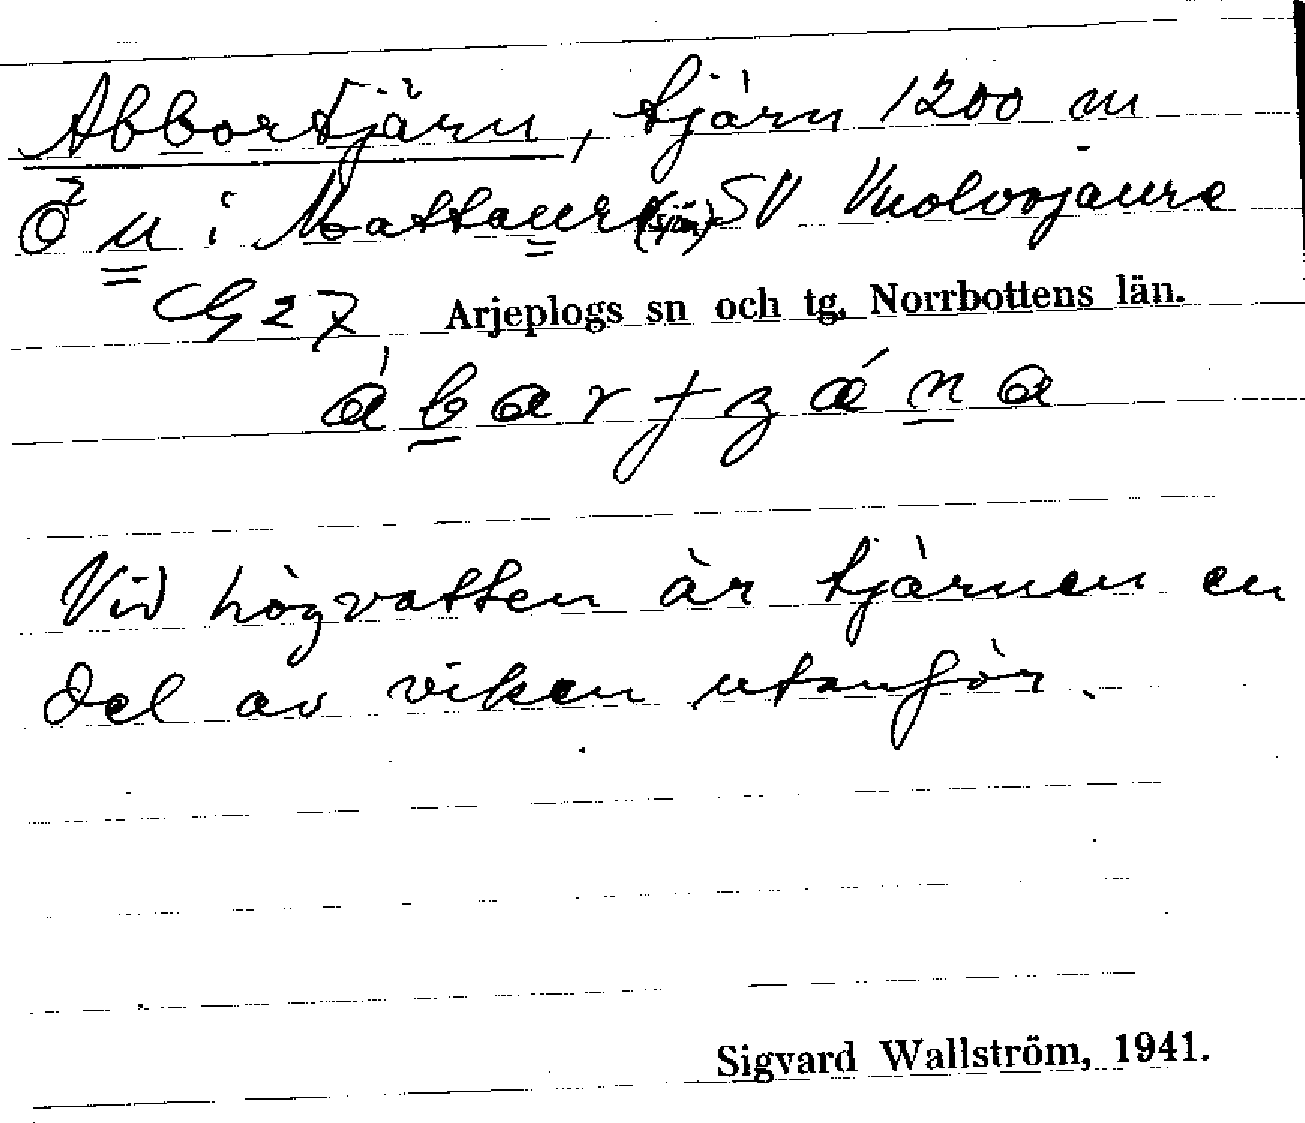 Abbortjärn, tjärn 1200 m
Ö u i Mattaur (sjön) SV Vuolvojaure
G 27 Arjeplogs sn och tg. Norrbottens län.
Vid högvatten är tjärnen en
del av viken utanför.
Sigvard Wallström, 1941.